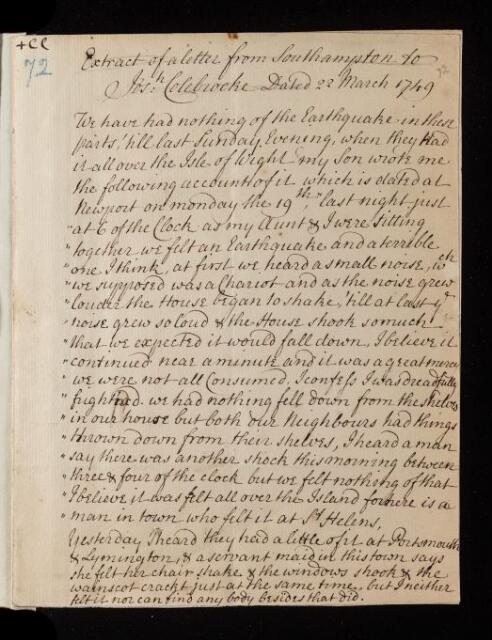 +cc
72
72
Extract of a letter from Southampton to
Jos:h Colebrocke Dated 22 March 1749
We have had nothing of the Earthquake in these
parts, 'till last Sunday Evening, when they had
it all over the Isle of Wight my Son wrote me
the following account of it which is dated at
Newport on monday the 19th, "last night just
"at 6 of the Clock as my Aunt & I were sitting
"together we felt an Earthquake and a terrible
"one I think, at first we heard a small noise, wch
"we supposed was a Chariot and as the noise grew
"louder the House began to shake, 'till at last ye
"noise grew so loud & the House shook so much
"that we expected it would fall down, I believe it
"continued near a minute and it was a great mercy
"we were not all Consumed, I confess I was dreadfully
"frighted. we had nothing fell down from the shelves
"in our house but both our Neighbours had things
"thrown down from their shelves, I heard a man
"say there was another shock this morning between
"three & four of the clock but we felt nothing of that
"I believe it was felt all over the Island for here is a
"man in town who felt it at St Helens,
Yesterday I heard they had a little of it at Portsmouth
& Lymington, & a servant maid in this town says
she felt her chair shake & the windows shook & the
wainscot crackt just at the same time, but I neither
felt it nor can find any body besides that did.